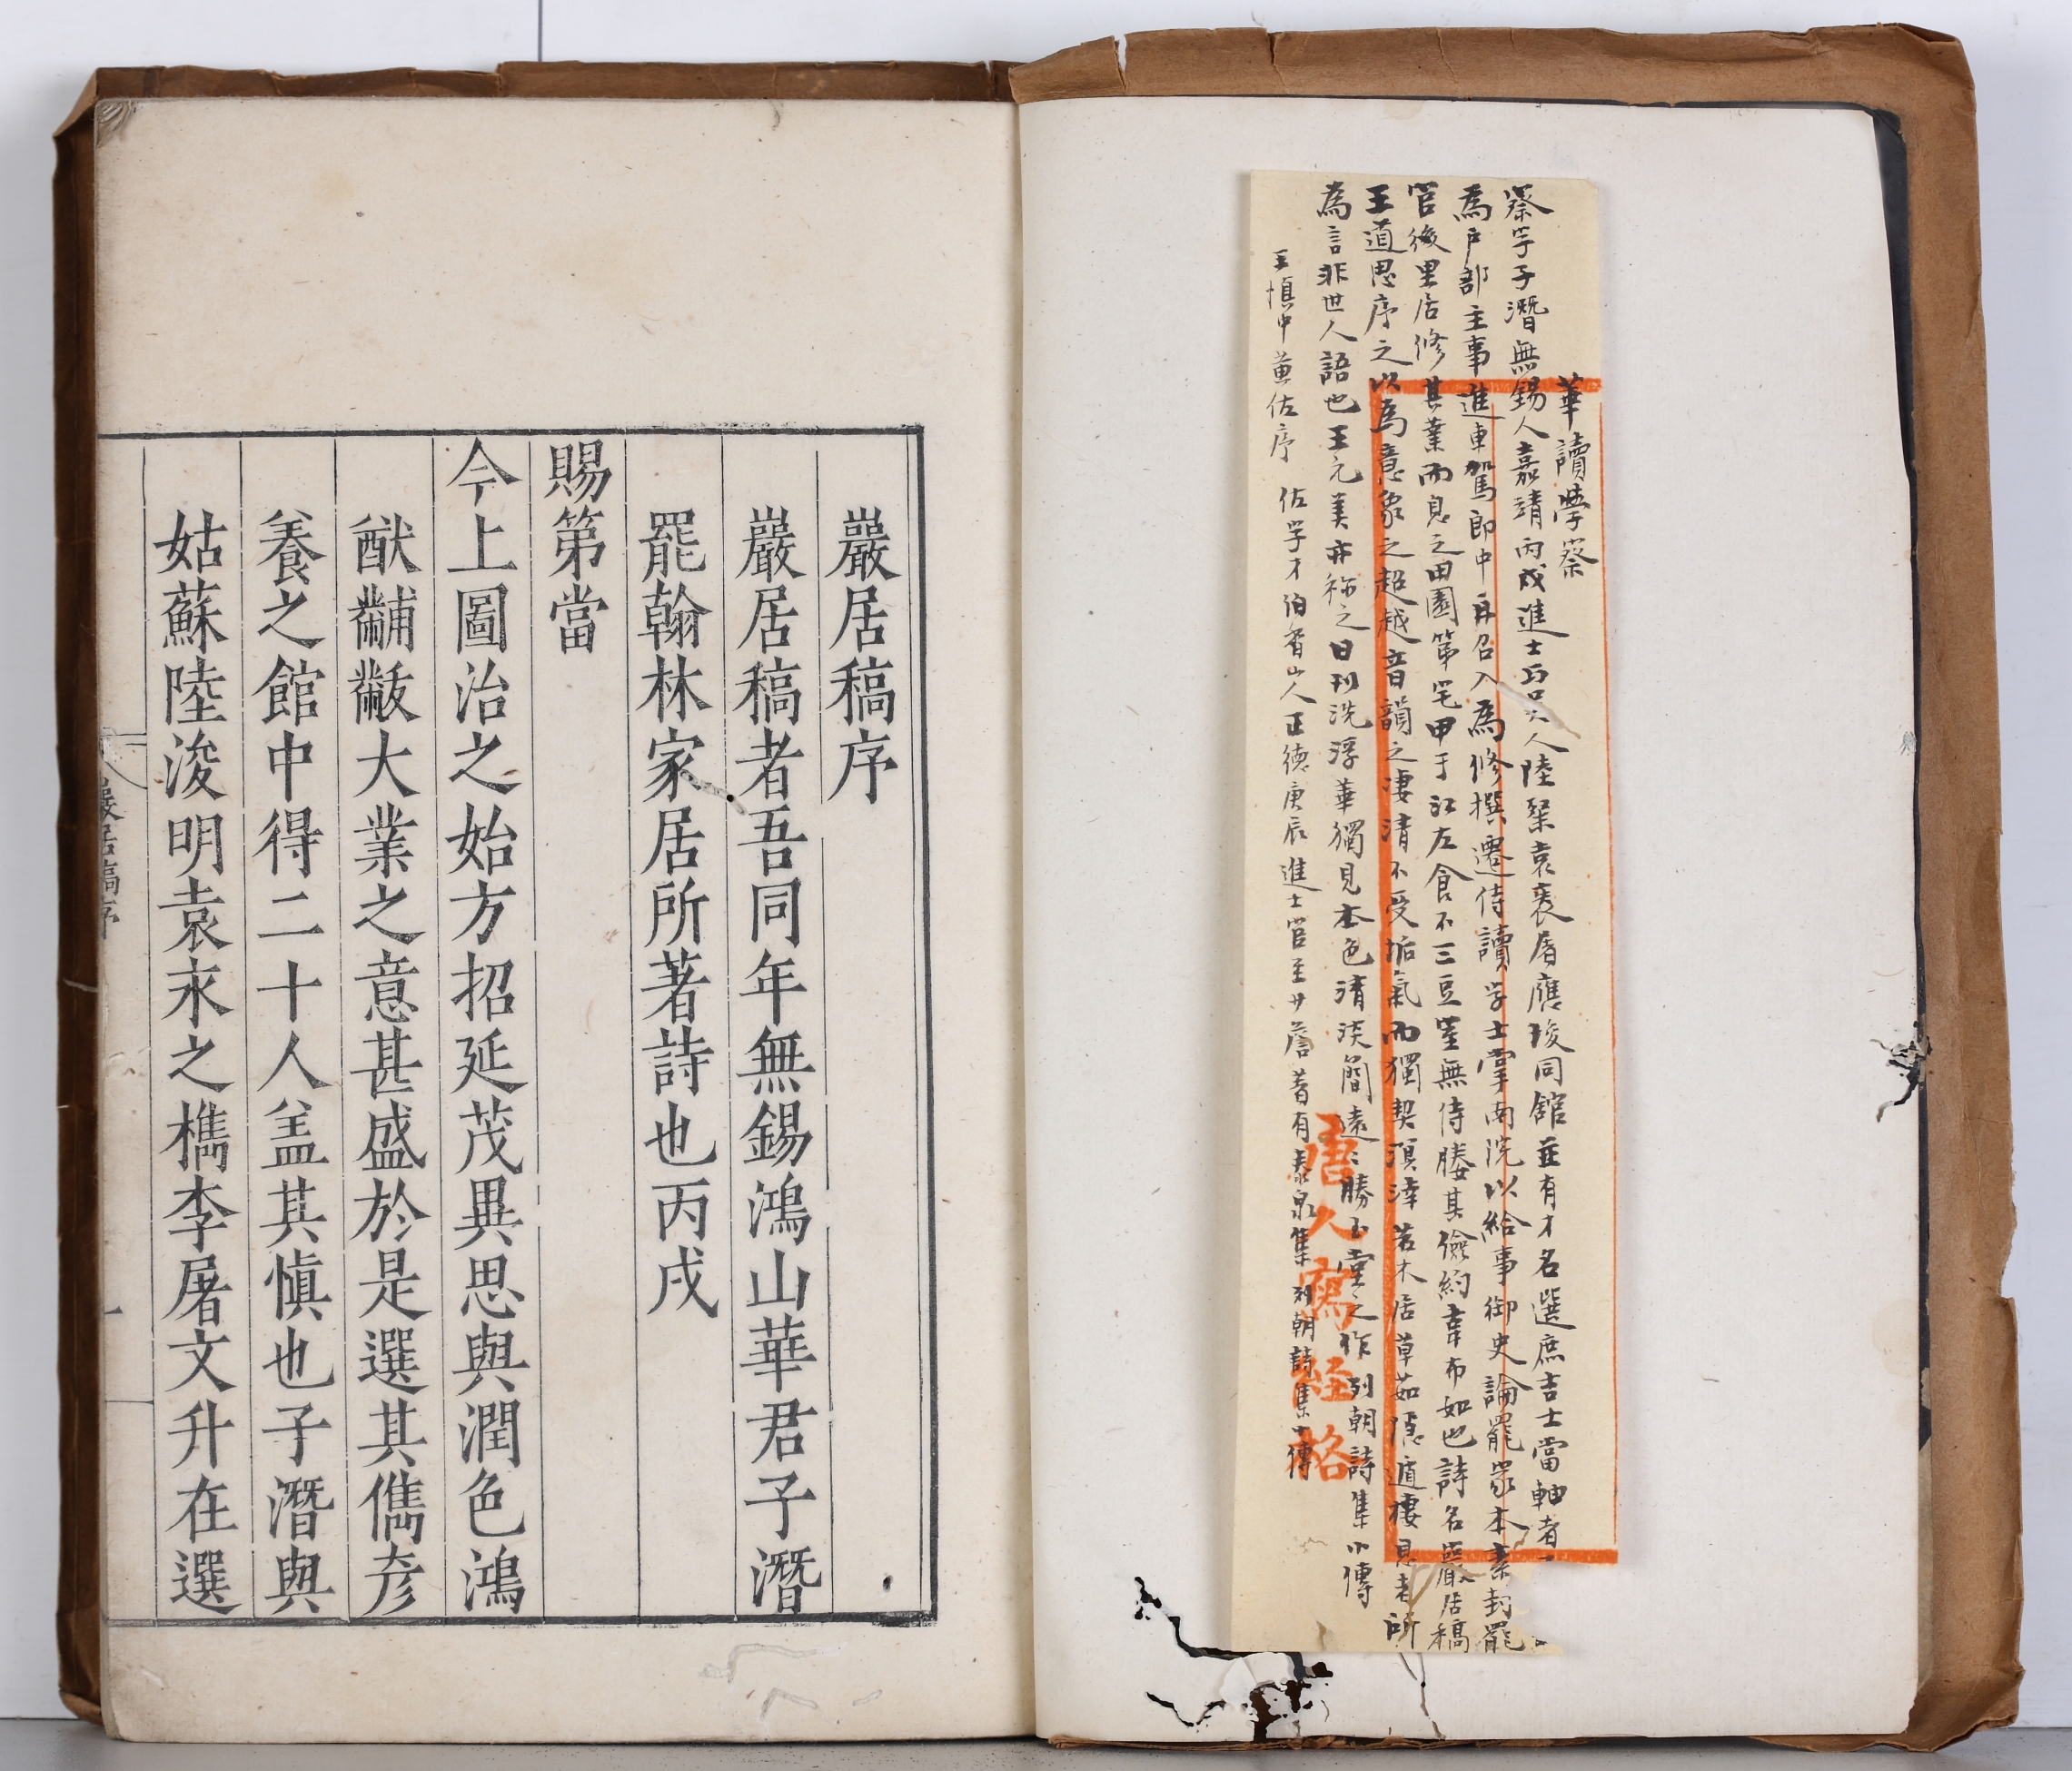 華讀學察
察字子潛無錫人嘉靖丙戌進士與吴人陸粲袁袠屠應埈同館並有才名選庶吉士當軸者
為戶部主事進車駕郎中再召入為修撰遷侍讀学士掌南院以給事御史論罷察本素封罷
官後里居修其業而息之田園第宅甲于江左食不三豆室無侍媵其儉約韋布如也詩名巖居稿
王道思序之以為意象之超越音韻之凄清不受垢氣而獨契溟涬若木居草茹隱遁棲息者所
為言非世人語也王元美亦稱之曰刊洗浮華獨見本色清淡簡遠遠勝玉堂之作列朝詩集小傳
王慎中黄佐序 佐字才伯香山人正德庚辰進士官至少詹著有泰泉集列朝詩集小傳
唐人寫經格
巖居稿序
巖居稿者吾同年無錫鴻山華君子潛
罷翰林家居所著詩也丙戌
賜第當
今上圖治之始方招延茂異思與潤色鴻
猷黼黻大業之意甚盛於是選其儁彦
養之館中得二十人盖其慎也子潛與
姑蘇陸浚明袁永之檇李屠文升在選
巖居稿序
一